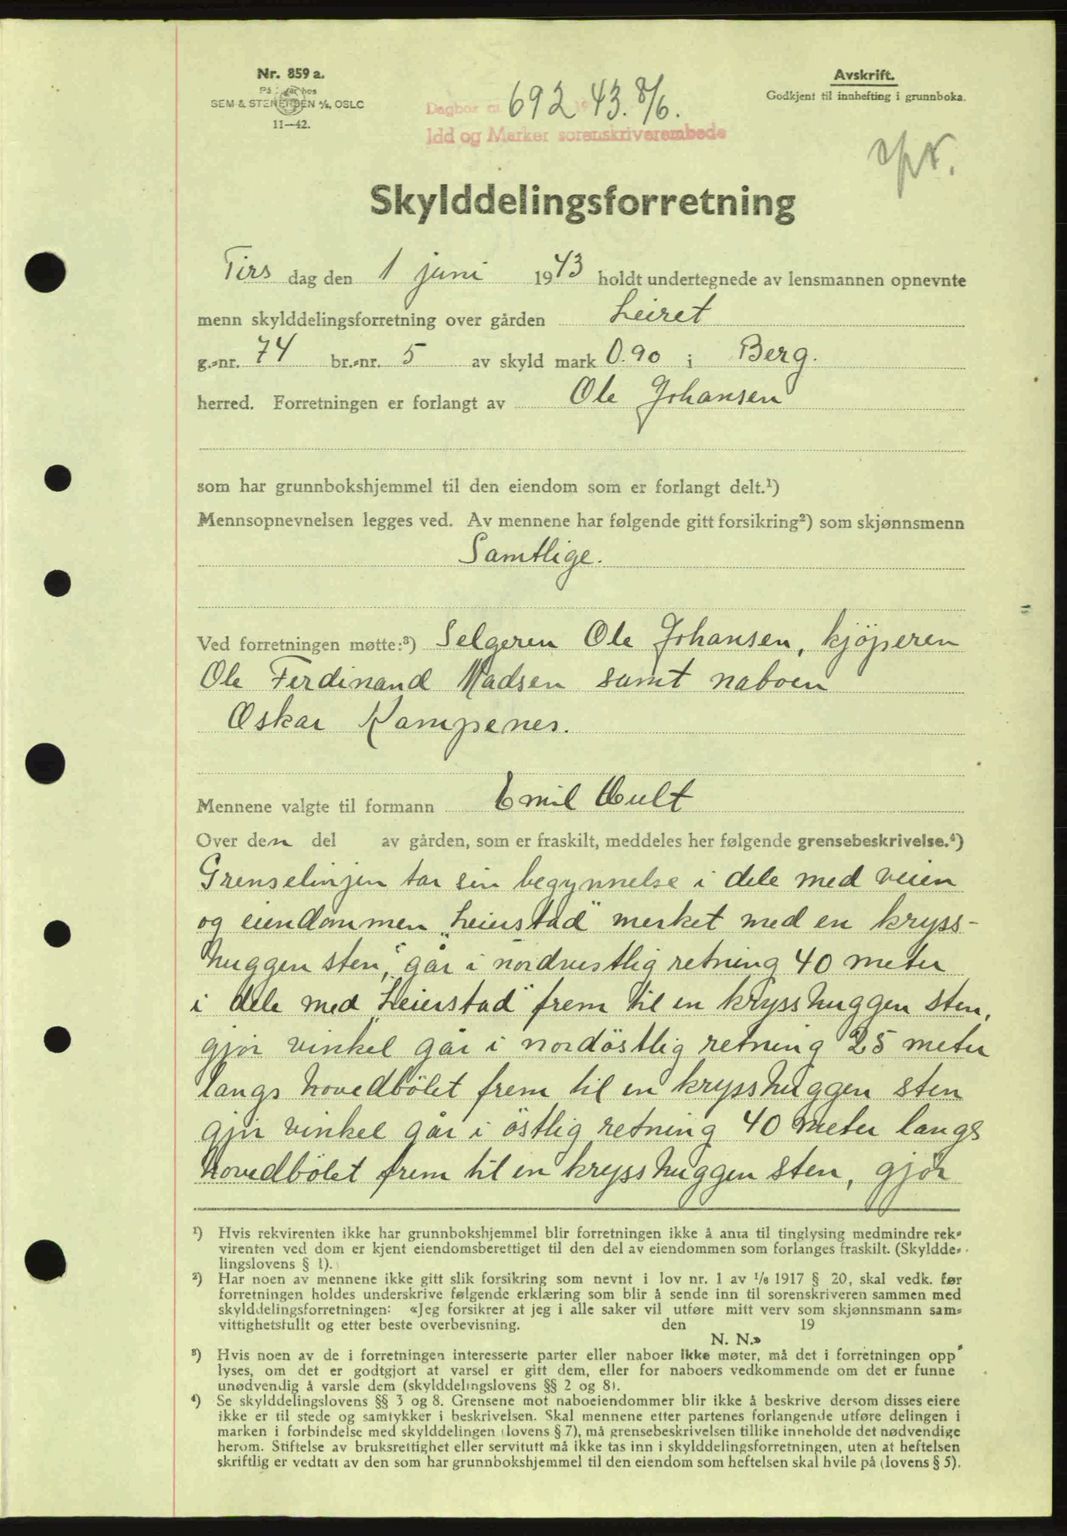 Nr. 859 a.
På lager hos
SEM & STENERSEN A/S, OSLO
11—42.
Avskrift.
Godkjent til innhefting i grunnboka.
Dagbok nr. 692 1943. 8/6.
Idd og Marker sorenskriverembede
Skylddelingsforretning
Tirs dag den 1 juni 1943 holdt undertegnede av lensmannen opnevnte
menn skylddelingsforretning over gården Leiret
g.-nr. 74 br.-nr. 5 av skyld mark 0.90 i Berg.
herred. Forretningen er forlangt av Ole Johansen
som har grunnbokshjemmel til den eiendom som er forlangt delt.¹)
Mennsopnevnelsen legges ved. Av mennene har følgende gitt forsikring²) som skjønnsmenn
Samtlige.
Ved forretningen møtte:³) Selgeren Ole Johansen, kjöperen
Ole Ferdinand Madsen samt naboen
Oskar Kampenes.
Mennene valgte til formann Emil Hult
Over den del av gården, som er fraskilt, meddeles her følgende grensebeskrivelse.⁴)
Grenselinjen tar sin begynnelse i dele med veien
og eiendommen „Leirstad" merket med en kryss-
huggen sten, går i nordvestlig retning 40 meter
i dele med „Leirstad" frem til en krysshuggen sten,
gjör vinkel går i nordöstlig retning 25 meter
langs hovedbölet frem til en krysshuggen sten
gjör vinkel går i östlig retning 40 meter langs
hovedbölet frem til en krysshuggen sten, gjör
¹) Hvis rekvirenten ikke har grunnbokshjemmel blir forretningen ikke å anta til tinglysing medmindre rek-
virenten ved dom er kjent eiendomsberettiget til den del av eiendommen som forlanges fraskilt. (Skyldde-
lingslovens § 1).
²) Har noen av mennene ikke gitt slik forsikring som nevnt i lov nr. 1 av 1/6 1917 § 20, skal vedk. før
forretningen holdes underskrive følgende erklæring som blir å sende inn til sorenskriveren sammen med
skylddelingsforretningen: «Jeg forsikrer at jeg i alle saker vil utføre mitt verv som skjønnsmann sam-
vittighetsfullt og etter beste overbevisning. den 19
N. N.»
³) Hvis noen av de i forretningen interesserte parter eller naboer ikke møter, må det i forretningen opp-
lyses, om det er godtgjort at varsel er gitt dem, eller for naboers vedkommende om det er funnet
unødvendig å varsle dem (skylddelingslovens §§ 2 og 8).
⁴) Se skylddelingslovens §§ 3 og 8. Grensene mot naboeiendommer blir ikke å beskrive dersom disses eiere
ikke er til stede og samtykker i beskrivelsen. Skal mennene etter partenes forlangende utføre delingen i
marken i forbindelse med skylddelingen (lovens § 7), må grensebeskrivelsen tillike inneholde det nødvendige
herom. Stiftelse av bruksrettighet eller servitutt må ikke tas inn i skylddelingsforretningen, uten at heftelsen
skriftlig er vedtatt av den som har grunnbokshjemmel til den eiendom som heftelsen skal hvile på (lovens § 5).